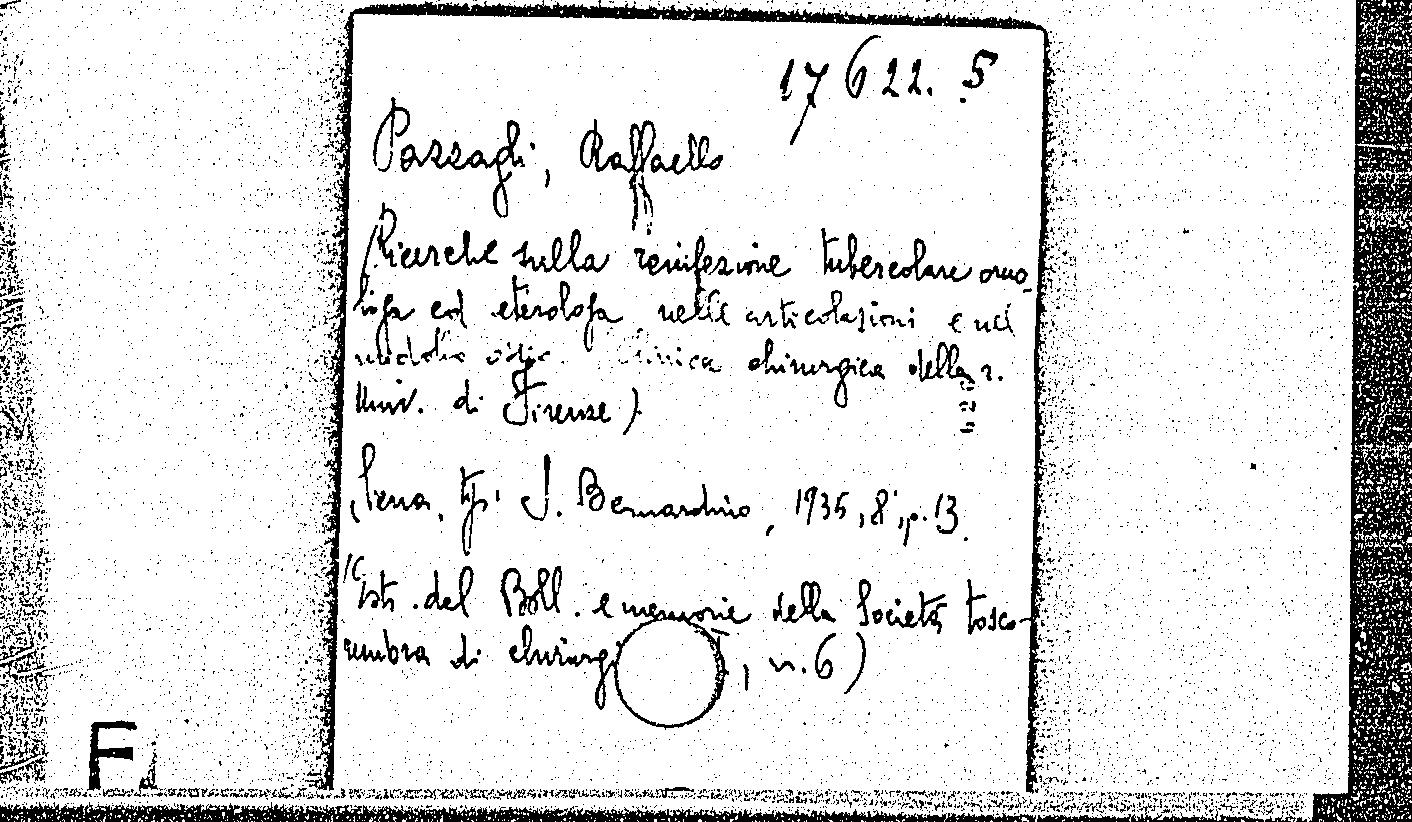 17622.5
Passagli, Raffaello
Ricerche sulla reinfezione tubercolare omo-
loga ed eterologa nelle articolazioni e nel
midollo osseo. Clinica chirurgica della r.
Univ. di Firenze).
Siena, tip. S. Bernardino, 1935, 8°, p. 13.
(Estr. del Boll. e memorie della Società tosco-
umbra di chirurgi , n. 6)
F